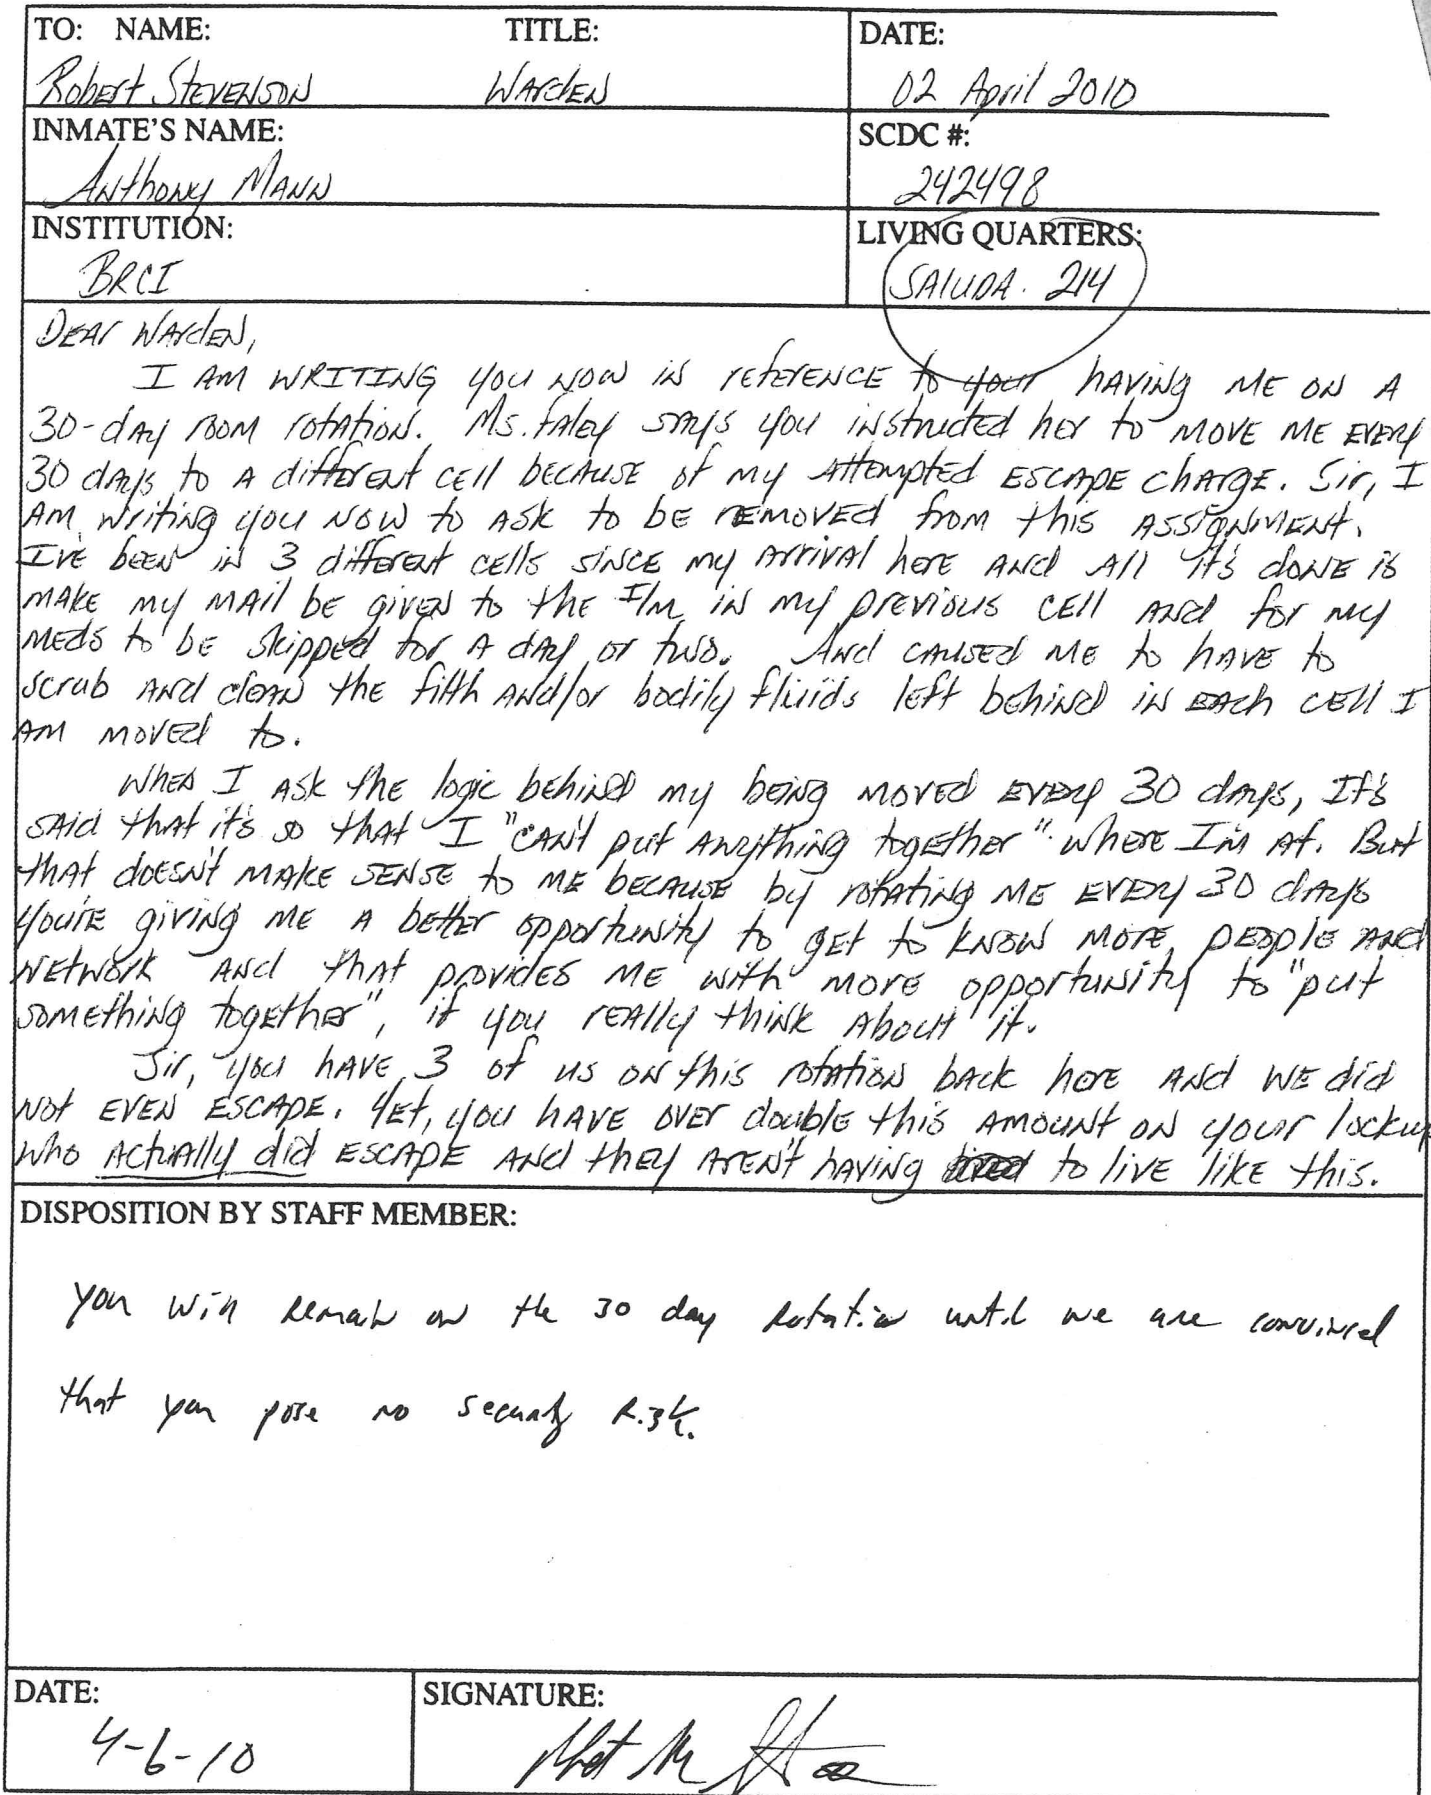 TO: NAME: TITLE: DATE:
Robert Stevenson Warden 02 April 2010
INMATE'S NAME: SCDC #:
Anthony Mann 242498
INSTITUTION: LIVING QUARTERS:
BRCI SALUDA. 214
Dear Warden,
I am writing you now in reference to your having me on a
30-day room rotation. Ms. Faley says you instructed her to move me every
30 days to a different cell because of my attempted escape charge. Sir, I
am writing you now to ask to be removed from this assignment.
I've been in 3 different cells since my arrival here and all it's done is
make my mail be given to the I/m in my previous cell and for my
meds to be skipped for a day or two. And caused me to have to
scrub and clean the filth and/or bodily fluids left behind in each cell I
am moved to.
When I ask the logic behind my being moved every 30 days, It's
said that it's so that I "can't put anything together" where I'm at. But
that doesn't make sense to me because by rotating me every 30 days
you're giving me a better opportunity to get to know more people and
network and that provides me with more opportunity to "put
something together", if you really think about it.
Sir, you have 3 of us on this rotation back here and we did
not even escape. Yet, you have over double this amount on your lockup
who actually did escape and they aren't having to live like this.
DISPOSITION BY STAFF MEMBER:
you will remain on the 30 day rotation until we are convinced
that you pose no security Risk.
DATE: SIGNATURE:
4-6-10